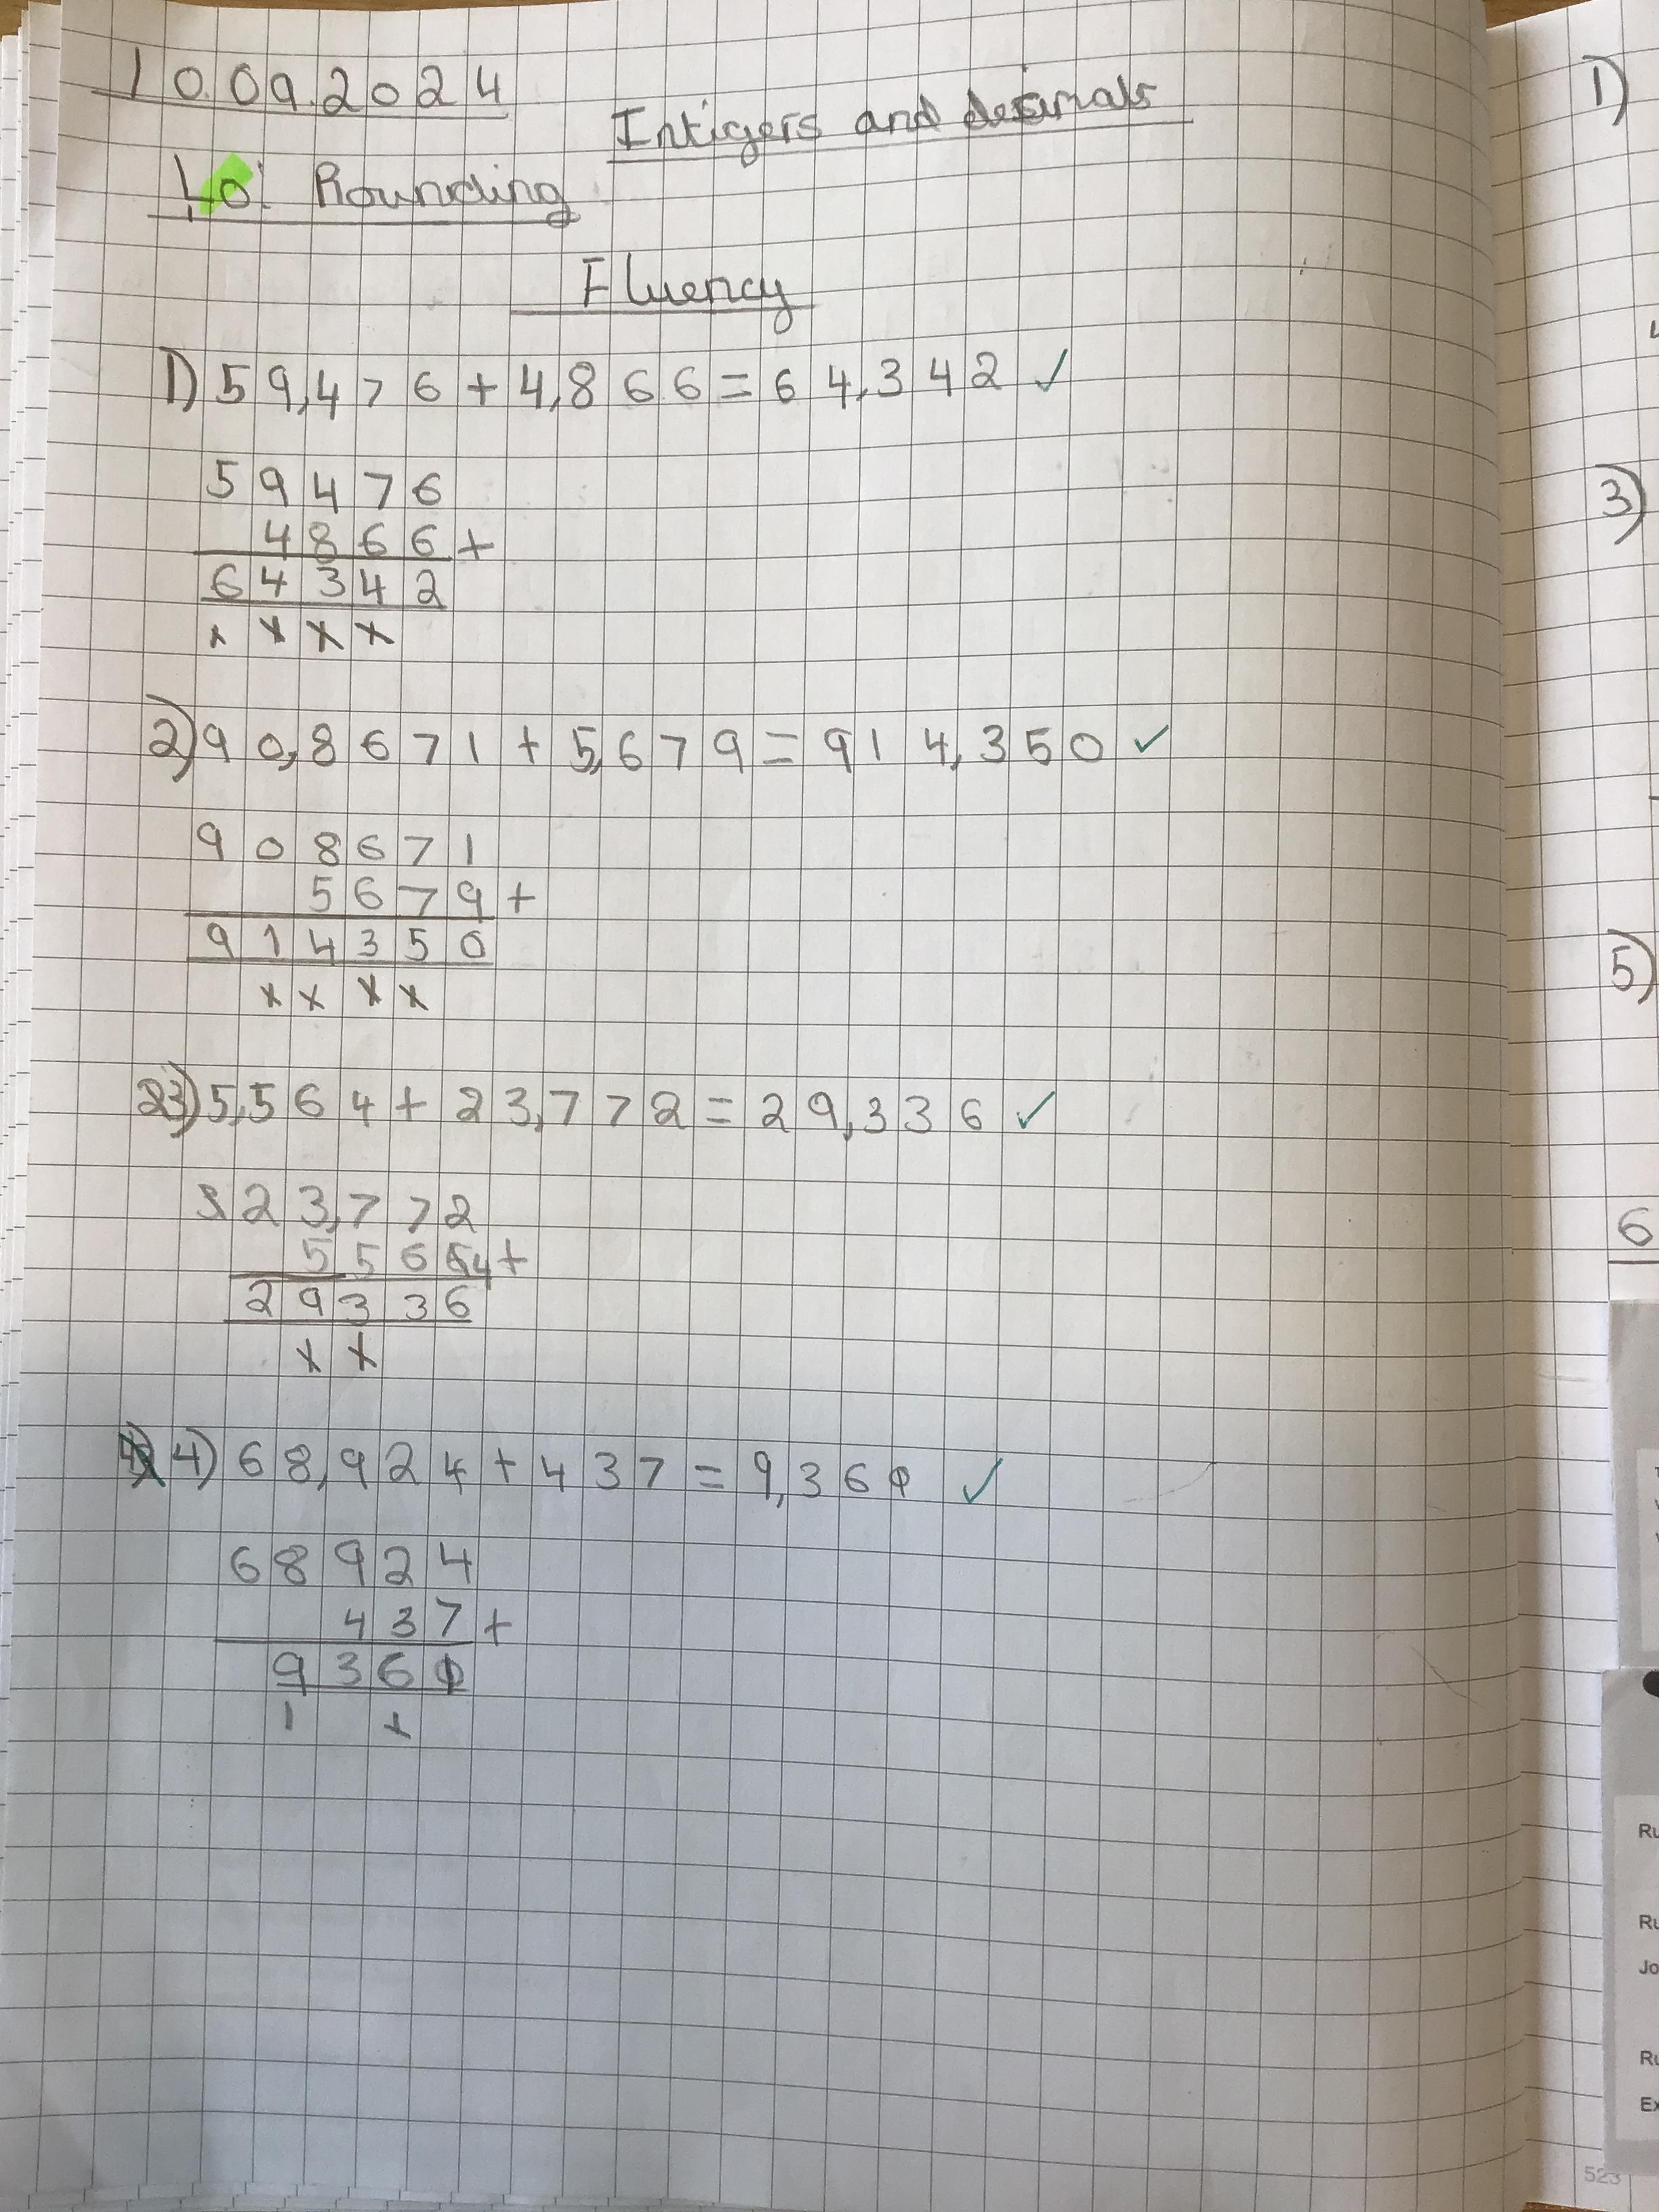 10.09.2024
Intigers and desimals
LO: Rounding
Fluency
1) 59,476 + 4,866 = 64,342 ✓
59476
4866 +
64342
2) 90,8671 + 5,679 = 914,350 ✓
908671
5679 +
914350
3) 5,564 + 23,772 = 29,336 ✓
23,772
5564 +
29336
4) 68,924 + 437 = 9,361 ✓
68924
437 +
9361
1
1)
3)
5)
6
Ru
Ru
Jo
Ru
Ex
523